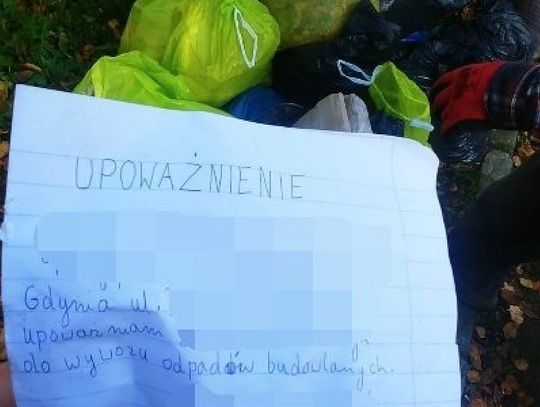 UPOWAŻNIENIE
Gdynia ul.
upoważniam
do wywozu odpadów budowlanych.